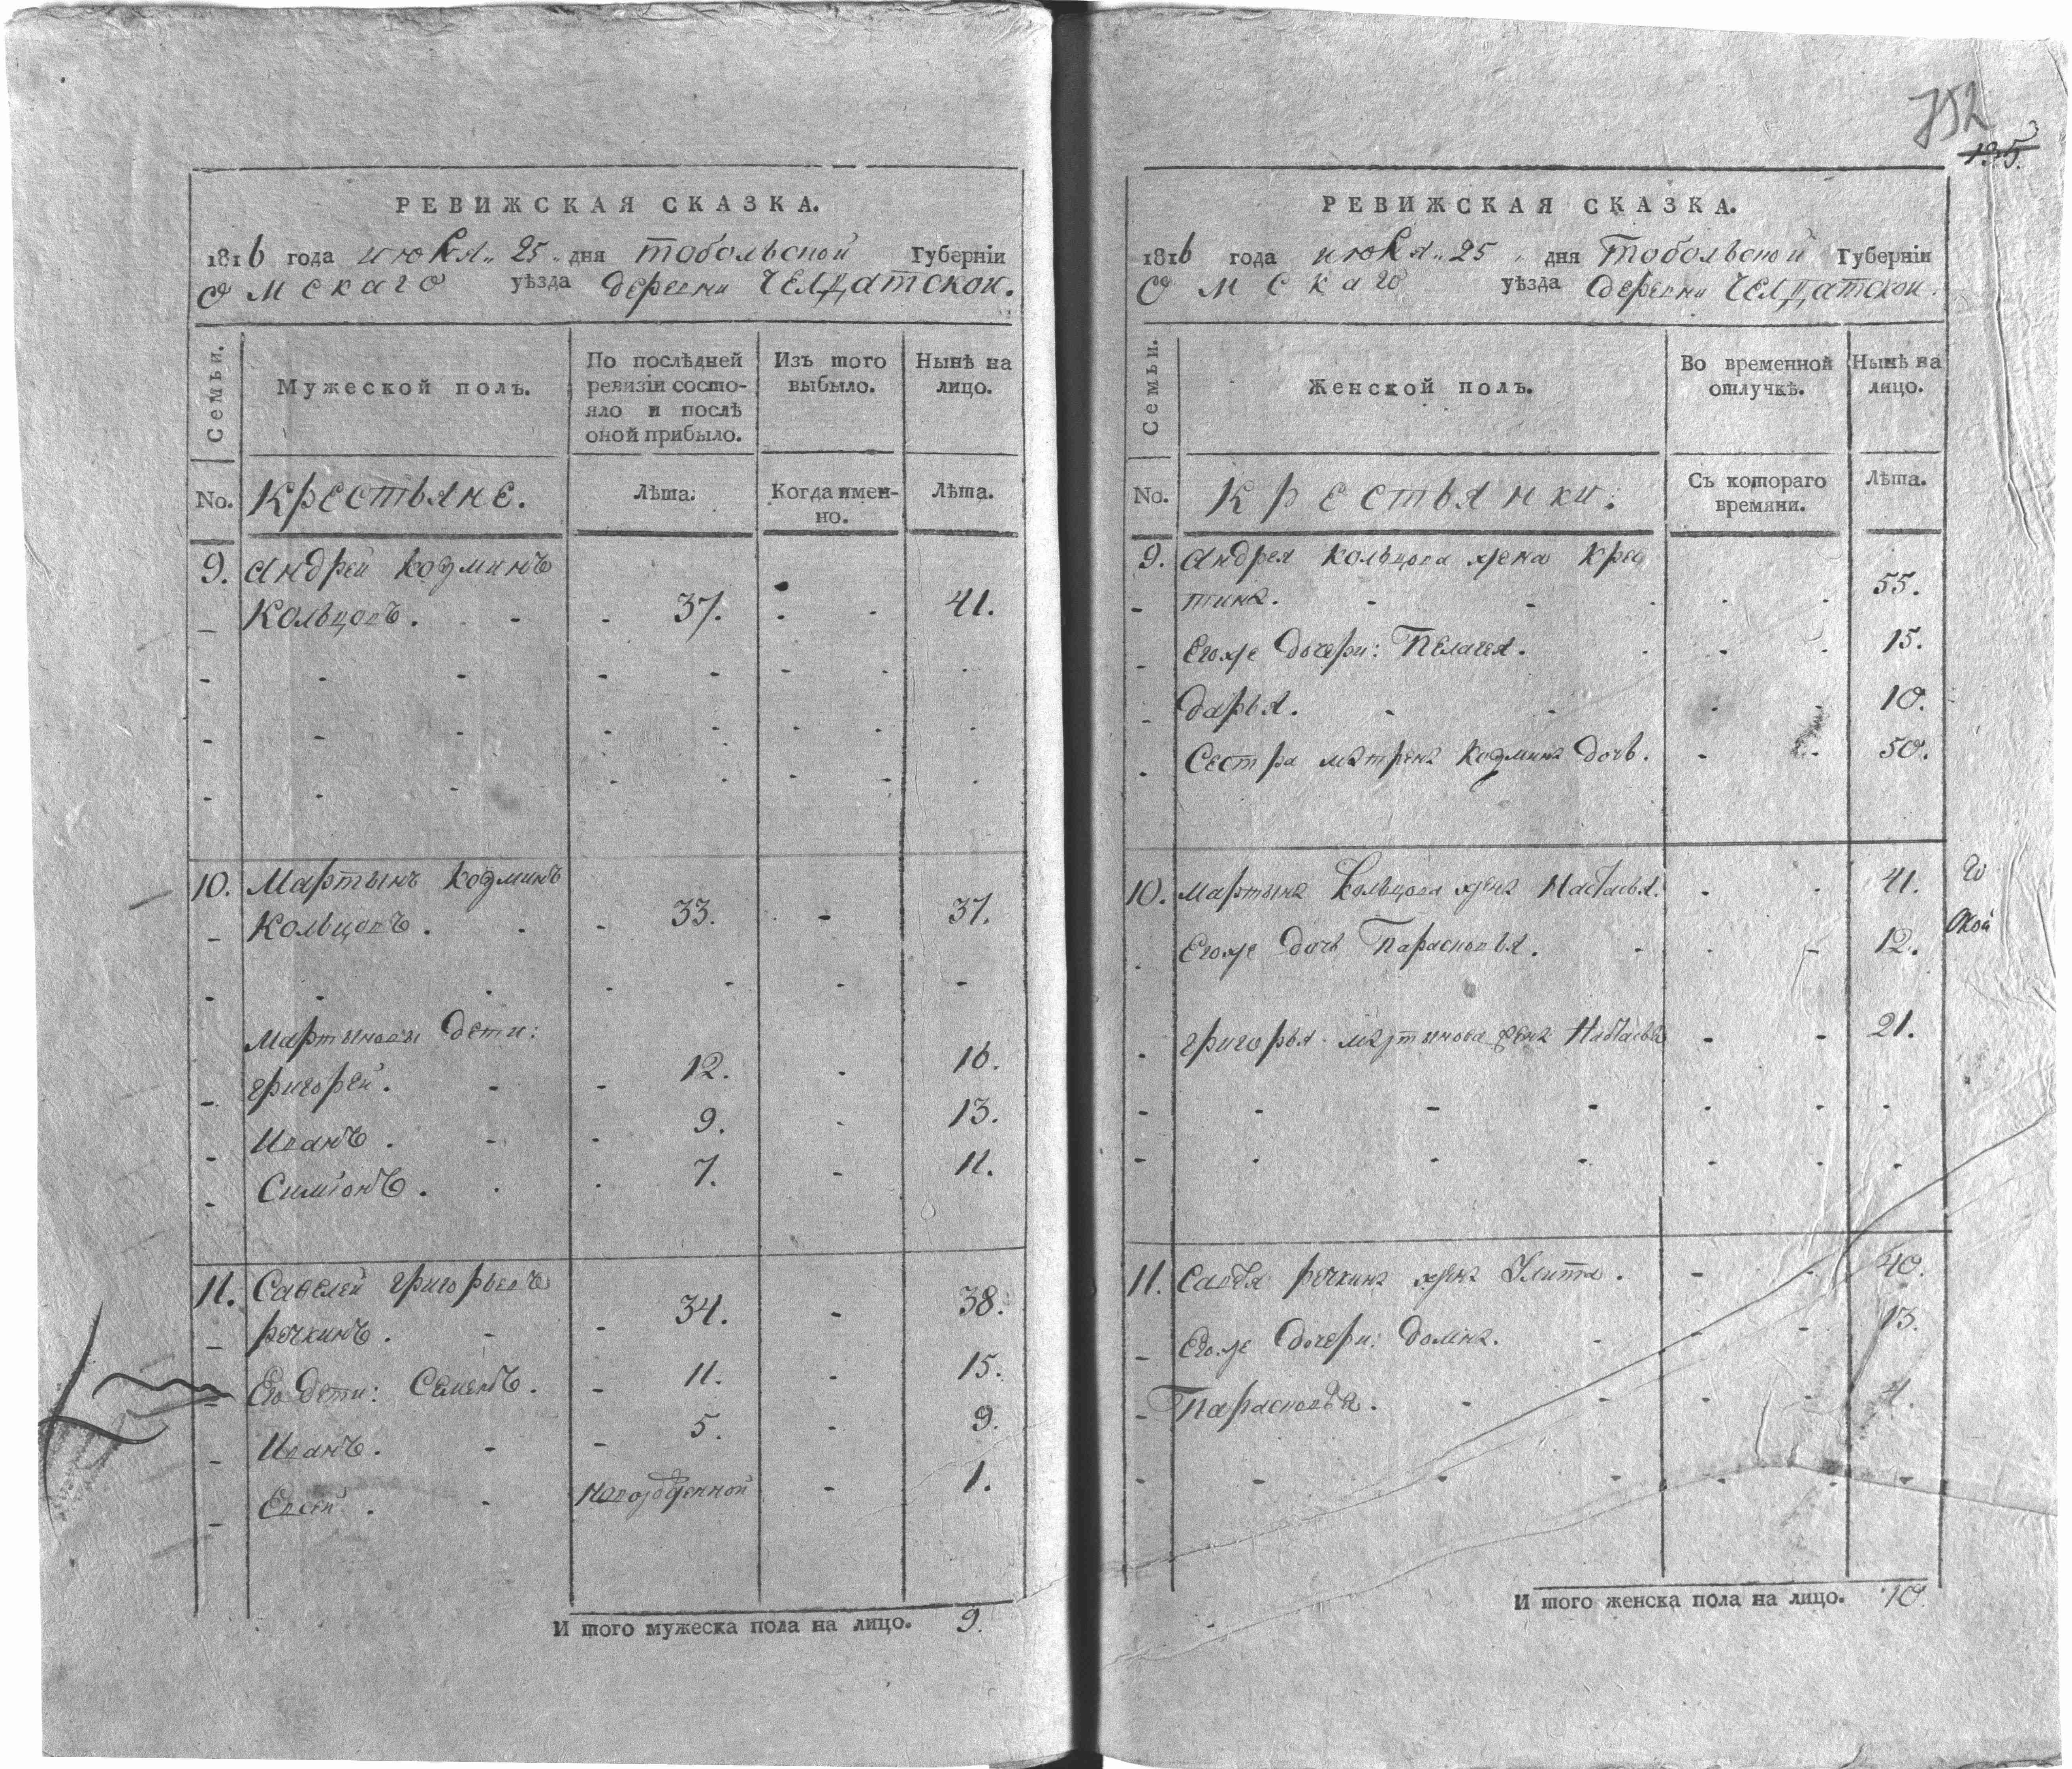 РЕВИЖСКАЯ СКАЗКА.
1816 года июля 25 дня Тобольской Губерніи
Омскаго уѣзда деревни Челдатской.
Семьи.
Мужеской полъ.
По послѣдней ревизіи состояло и послѣ оной прибыло.
Изъ того выбыло.
Нынѣ на лицо.
No. Крестьяне. Лѣта. Когда именно. Лѣта.
9. Андрей Козминъ
Кольцовъ. 37. 41.
10. Мартынъ Козминъ
Кольцовъ. 33. 37.
Мартыновы дети:
Григорей. 12. 16.
Иванъ. 9. 13.
Симионъ. 7. 11.
11. Савелей Григорьевъ
Речкинъ. 34. 38.
Его дети: Семенъ. 11. 15.
Иванъ. 5. 9.
Евсей. Новорожденной 1.
И того мужеска пола на лицо. 9.
752
135.
РЕВИЖСКАЯ СКАЗКА.
1816 года июля 25 дня Тобольской Губерніи
Омскаго уѣзда деревни Челдатской.
Семьи.
Женской полъ.
Во временной отлучкѣ.
Нынѣ на лицо.
No. Крестьянки. Съ котораго времяни. Лѣта.
9. Андрея Кольцова жена Крес
тина. 55.
Егоже дочери: Пелагея. 15.
Дарья. 10.
Сестра Матрена Козмина дочь. 50.
10. Мартына Кольцова жена Настасья. 41.
Егоже дочь Парасковья. 12.
Григорья Мартынова жена Настасья 21.
11. Савелья Речкина жена Улита. 40.
Егоже дочери: Домна. 13.
Парасковья. 4.
И того женска пола на лицо. 10.